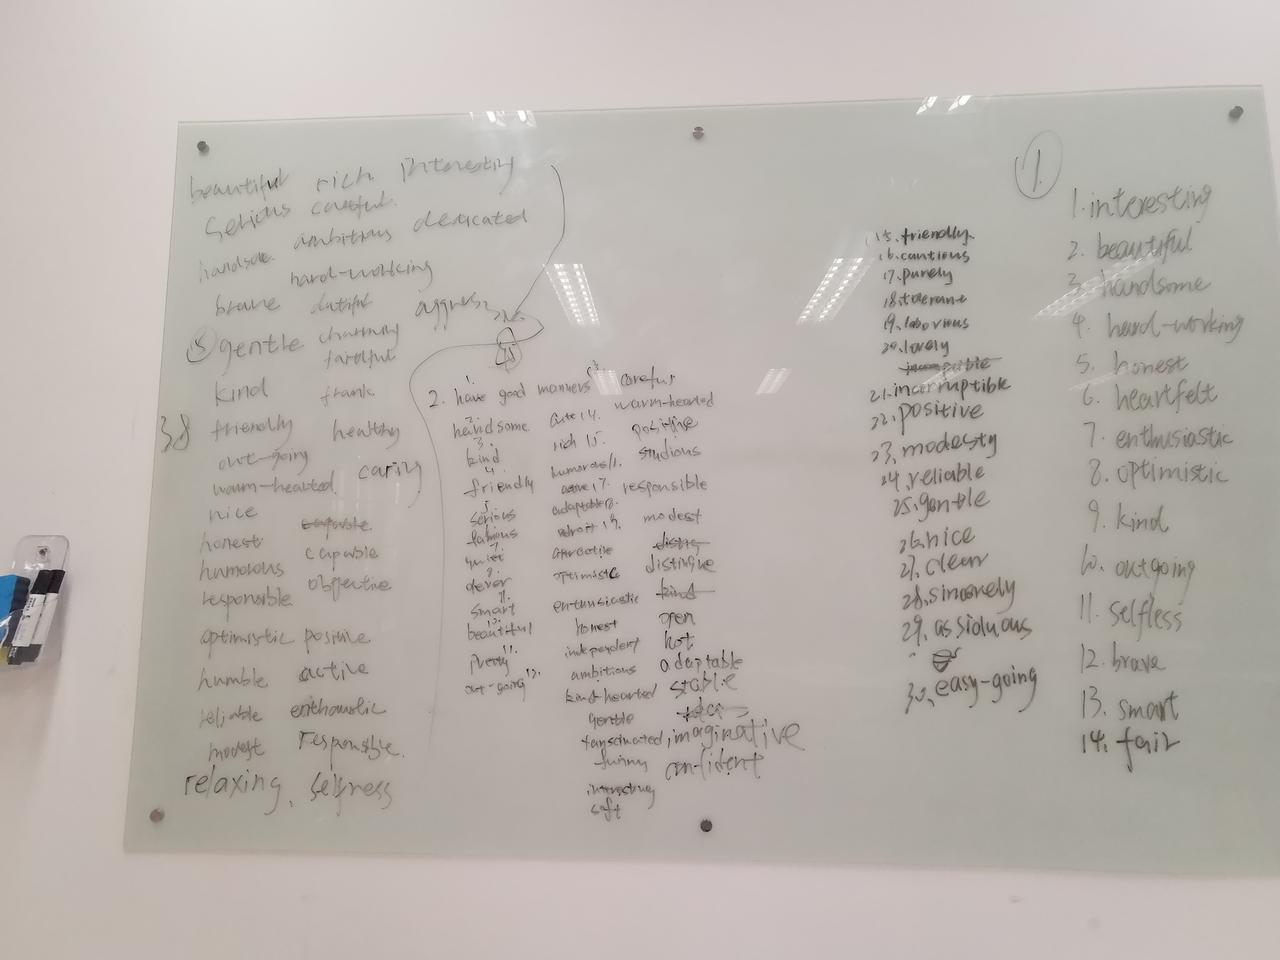 beautiful rich interesting
serious careful
handsome ambitious dedicated
hard-working
brave
gentle charming
kind frank
38
friendly healthy
out-going
warm-hearted caring
nice
honest capable
humorous objective
responsible
optimistic
humble active
reliable
modest responsible.
relaxing,
45
2. have good manners careful
handsome cute 14. warm-hearted
kind rich 15. positive
friendly studious
serious responsible
famous modest
quiet
clever optimistic
smart enthusiastic
beautiful honest open
pretty independent hot
out-going ambitious adaptable
kind hearted stable
gentle
imaginative
funny confident
interesting
soft
15. friendly
16. cautious
17. purely
18. tolerant
19. laborious
20. lovely
21. incorruptible
22. positive
23. modesty
24. reliable
25. gentle
26. nice
27. clear
28. sincerely
29. assiduous
30. easy-going
1.
1. interesting
2. beautiful
3. handsome
4. hard-working
5. honest
6. heartfelt
7. enthusiastic
8. optimistic
9. kind
10. outgoing
11. selfless
12. brave
13. smart
14. fair